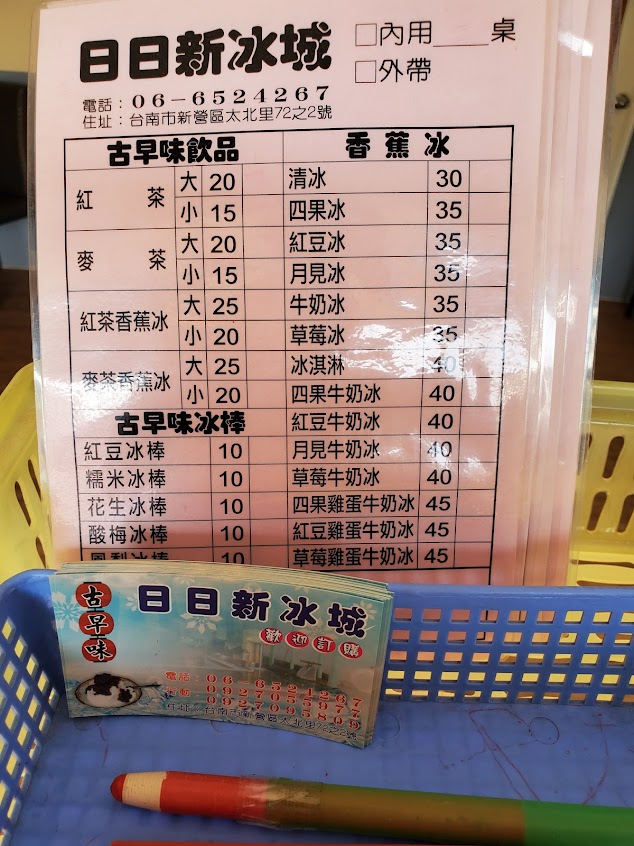 日日新冰城
□內用____桌
□外帶
電話：06-6524267
住址：台南市新營區太北里72之2號
古早味飲品
紅茶 大 20
小 15
麥茶 大 20
小 15
紅茶香蕉冰 大 25
小 20
麥茶香蕉冰 大 25
小 20
古早味冰棒
紅豆冰棒 10
糯米冰棒 10
花生冰棒 10
酸梅冰棒 10
鳳梨冰棒 10
香蕉冰
清冰 30
四果冰 35
紅豆冰 35
月見冰 35
牛奶冰 35
草莓冰 35
冰淇淋 40
四果牛奶冰 40
紅豆牛奶冰 40
月見牛奶冰 40
草莓牛奶冰 40
四果雞蛋牛奶冰 45
紅豆雞蛋牛奶冰 45
草莓雞蛋牛奶冰 45
古早味
日日新冰城
歡迎訂購
電話：06-6524267
住址：台南市新營區太北里72之2號